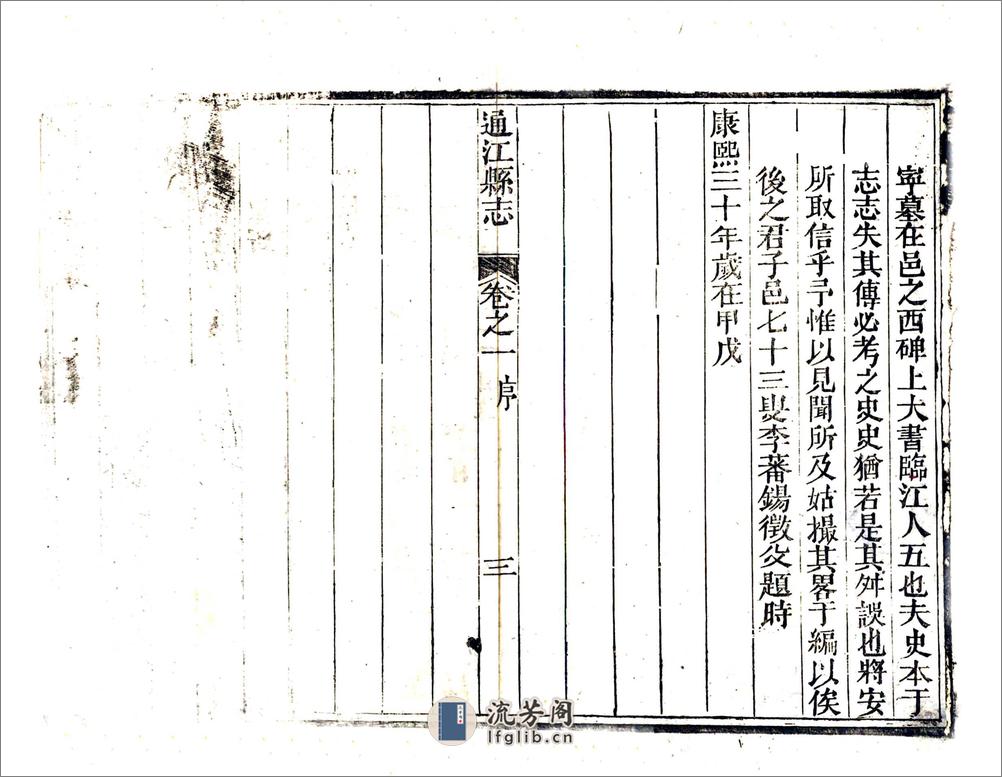 寧墓在邑之西碑上大書臨江人五也夫史本于
志志失其傳必考之史史猶若是其舛誤也將安
所取信乎予惟以見聞所及姑撮其畧于編以俟
後之君子邑七十三叟李蕃錫徵父題時
康熙三十年歲在甲戊
通江縣志 卷之一 序 三
流芳阁
lfglib.cn